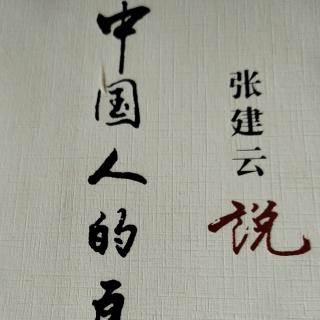 张建云
说
中国人的